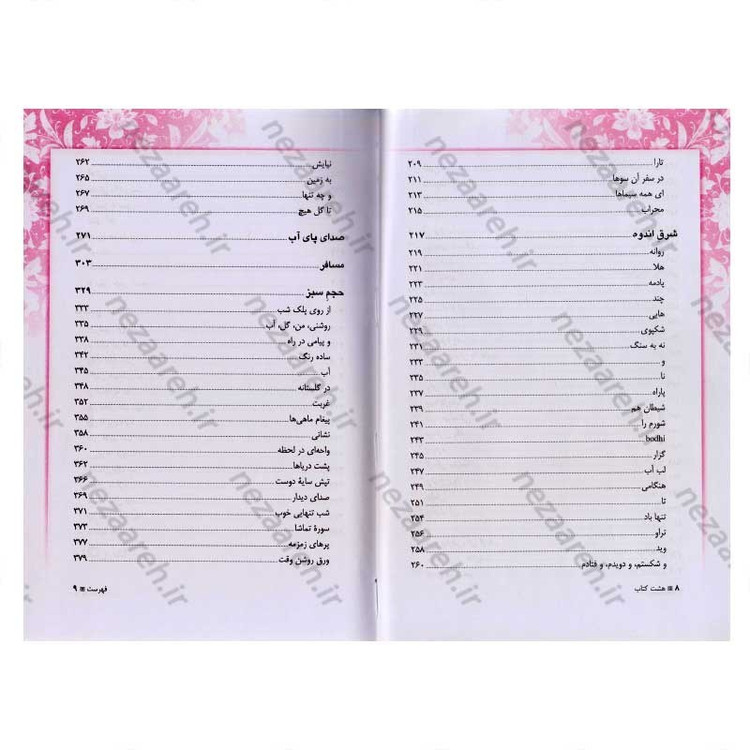 تارا ۲۰۹
در سفر آن سوها ۲۱۱
ای همه سیماها ۲۱۳
محراب ۲۱۵
شرق اندوه ۲۱۷
روانه ۲۱۹
هلا ۲۲۱
پادمه ۲۲۳
چند ۲۲۵
هایی ۲۲۷
شکپوی ۲۲۹
نه به سنگ ۲۳۱
و ۲۳۳
نا ۲۳۵
پاراه ۲۳۷
شیطان هم ۲۳۹
شورم را ۲۴۱
bodhi ۲۴۳
گزار ۲۴۵
لب آب ۲۴۷
هنگامی ۲۴۹
تا ۲۵۱
تنها باد ۲۵۴
تراو ۲۵۶
وید ۲۵۸
و شکستم، و دویدم، و فتادم ۲۶۰
۸ هشت کتاب
نیایش ۲۶۲
به زمین ۲۶۵
و چه تنها ۲۶۷
تا گل هیچ ۲۶۹
صدای پای آب ۲۷۱
مسافر ۳۰۳
حجم سبز ۳۲۹
از روی پلک شب ۳۳۳
روشنی، من، گل، آب ۳۳۵
و پیامی در راه ۳۳۸
ساده رنگ ۳۴۲
آب ۳۴۵
در گلستانه ۳۴۸
غربت ۳۵۲
پیغام ماهی‌ها ۳۵۵
نشانی ۳۵۸
واحه‌ای در لحظه ۳۶۰
پشت دریاها ۳۶۲
تپش سایۀ دوست ۳۶۶
صدای دیدار ۳۶۹
شب تنهایی خوب ۳۷۱
سورۀ تماشا ۳۷۳
پرهای زمزمه ۳۷۷
ورق روشن وقت ۳۷۹
فهرست ۹
nezaareh.ir